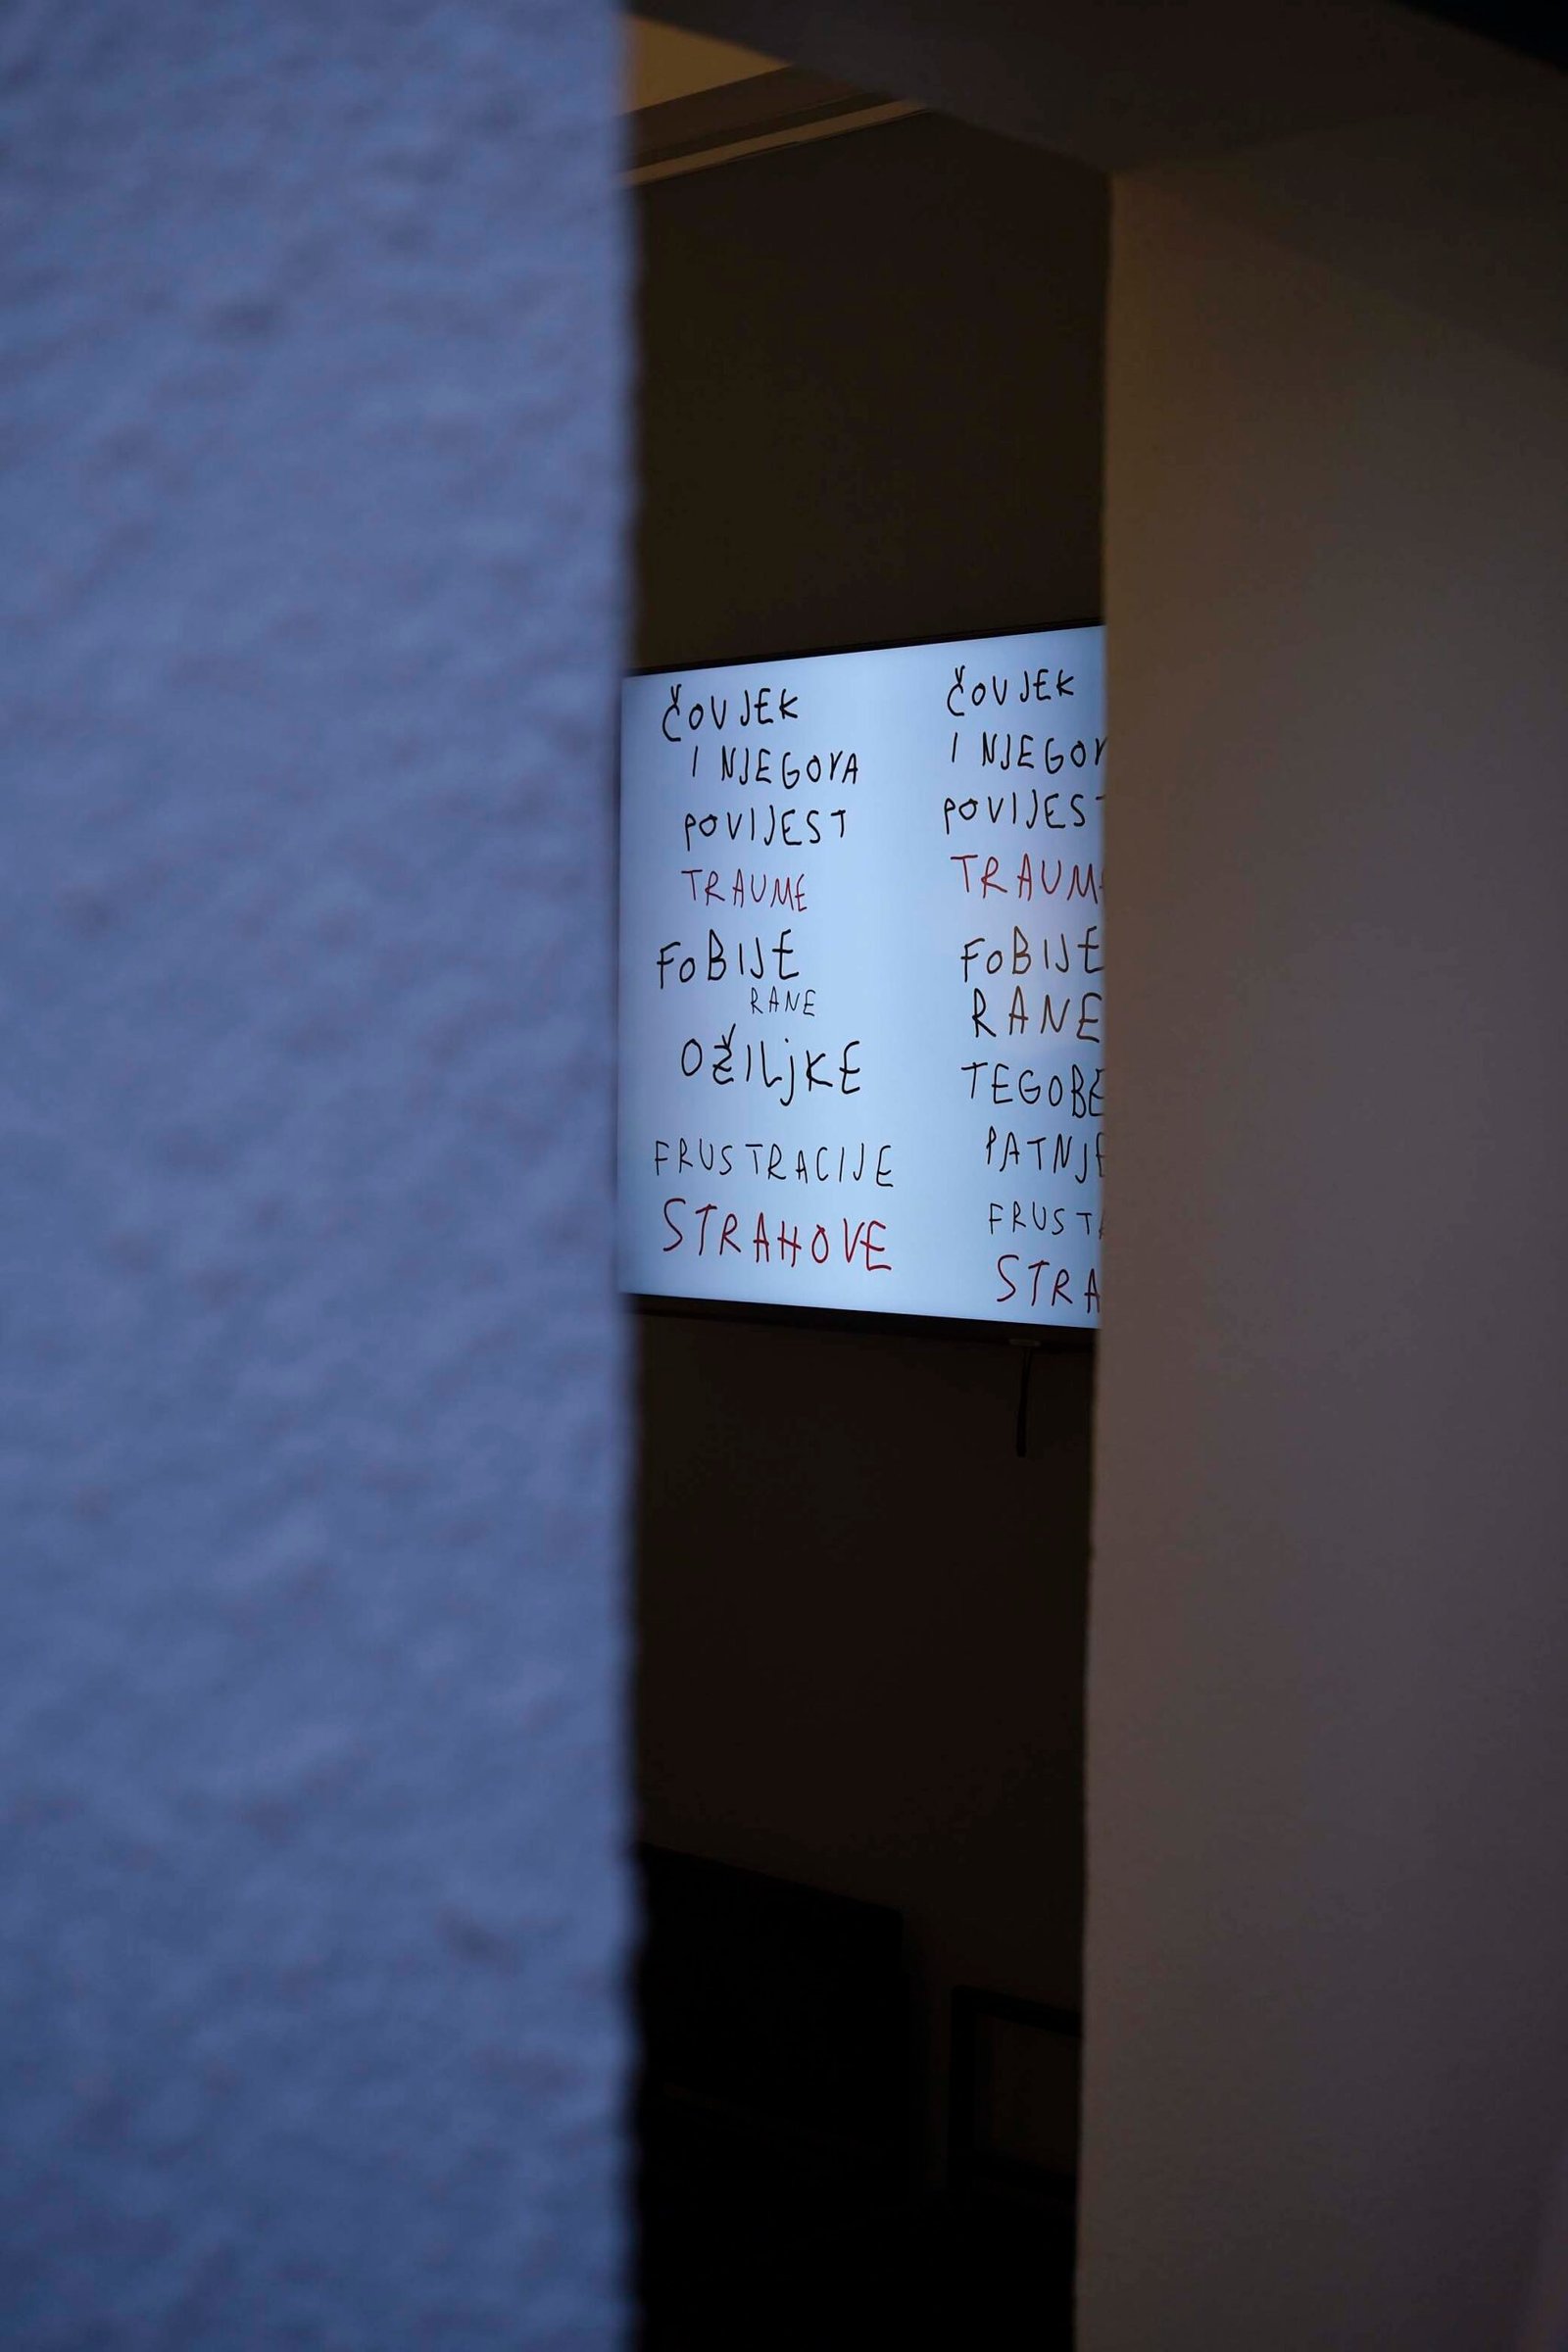 ČOVJEK
I NJEGOVA
POVIJEST
TRAUME
FOBIJE
RANE
OŽILJKE
FRUSTRACIJE
STRAHOVE
ČOVJEK
I NJEGOV
POVIJEST
TRAUM
FOBIJE
RANE
TEGOBE
PATNJE
FRUST
STRA